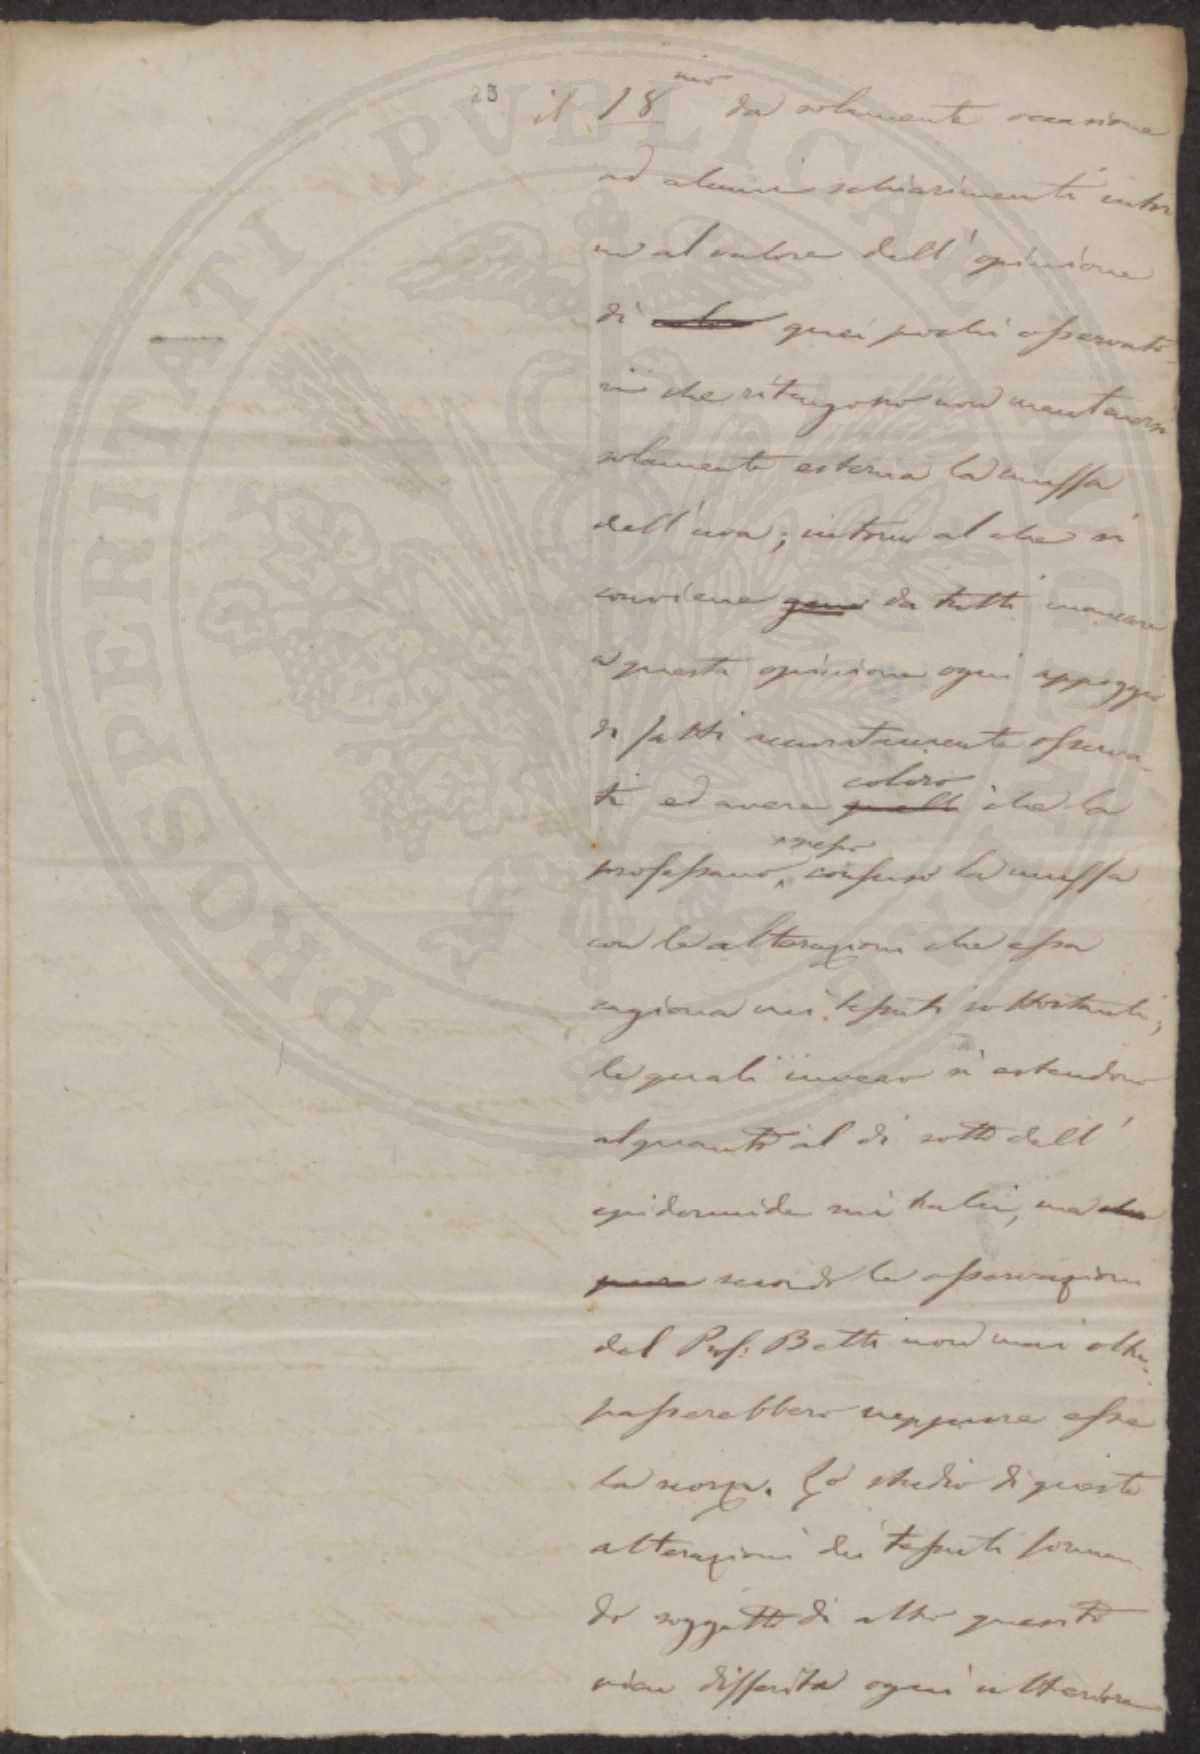 23
il 18mo da solamente occasione
ad alcuni schiarimenti intor
no al valore dell'opinione
di quei pochi osservato-
ri che ritengono non mantenersi
solamente esterna la muffa
dell'uva; intorno al che si
conviene da tutti mancare
a questa opinione ogni appoggio
di fatti accuratamente osserva-
ti ed avere coloro che la
professano, spesso confuso la muffa
con le alterazioni che essa
cagiona nei tessuti sottostanti;
le quali invero si estendono
alquanto al di sotto dell'
epidermide nei tralci, ma
secondo le osservazioni
del Prof: Betti non mai oltre-
passerebbero neppure esse
la scorza. Lo studio di queste
alterazioni dei tessuti forman-
do soggetto di altro quesito
vien differita ogni ulteriore
PROSPERITATI PVBLICAE AVGENDAE